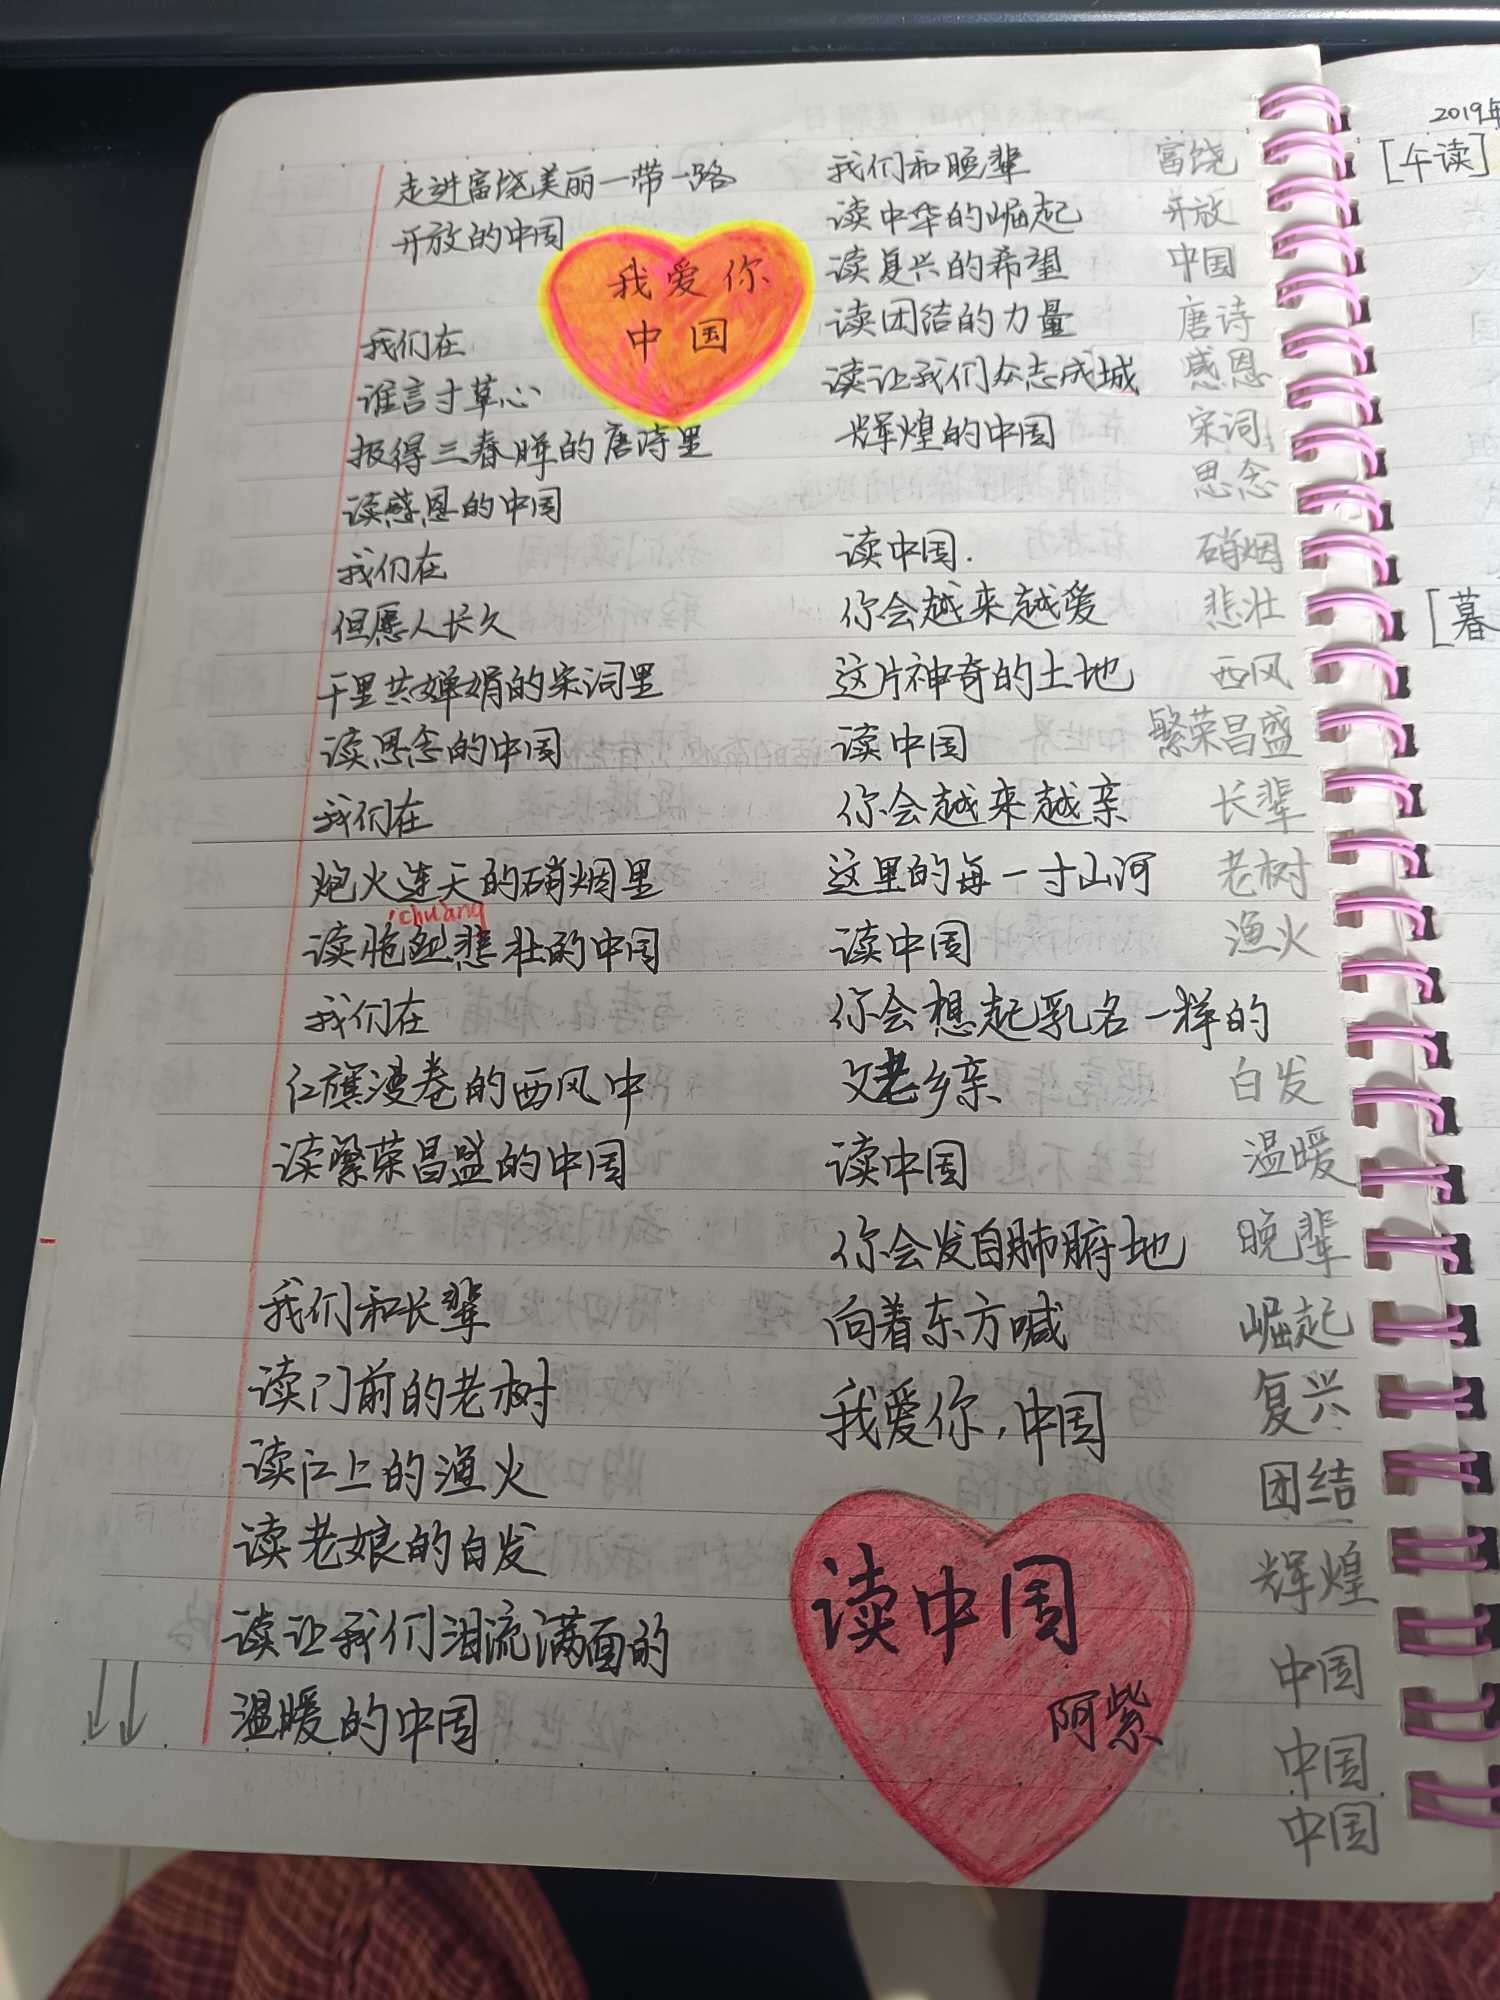 走进富饶美丽一带一路
开放的中国
我爱你
中国
我们在
谁言寸草心
报得三春晖的唐诗里
读感恩的中国
我们在
但愿人长久
千里共婵娟的宋词里
读思念的中国
我们在
炮火连天的硝烟里
chuang
读抱刭悲壮的中国
我们在
红旗漫卷的西风中
读繁荣昌盛的中国
我们和长辈
读门前的老树
读江上的渔火
读老娘的白发
读让我们泪流满面的
温暖的中国
我们和晚辈
读中华的崛起
读复兴的希望
读团结的力量
读让我们众志成城
辉煌的中国
读中国.
你会越来越爱
这片神奇的土地
读中国
你会越来越亲
这里的每一寸山河
读中国
你会想起乳名一样的
父老乡亲
读中国
你会发自肺腑地
向着东方喊
我爱你,中国
读中国
阿紫
富饶
开放
中国
唐诗
感恩
宋词
思念
硝烟
悲壮
西风
繁荣昌盛
长辈
老树
渔火
白发
温暖
晚辈
崛起
复兴
团结
辉煌
中国
中国
中国
2019年
[午读]
[暮